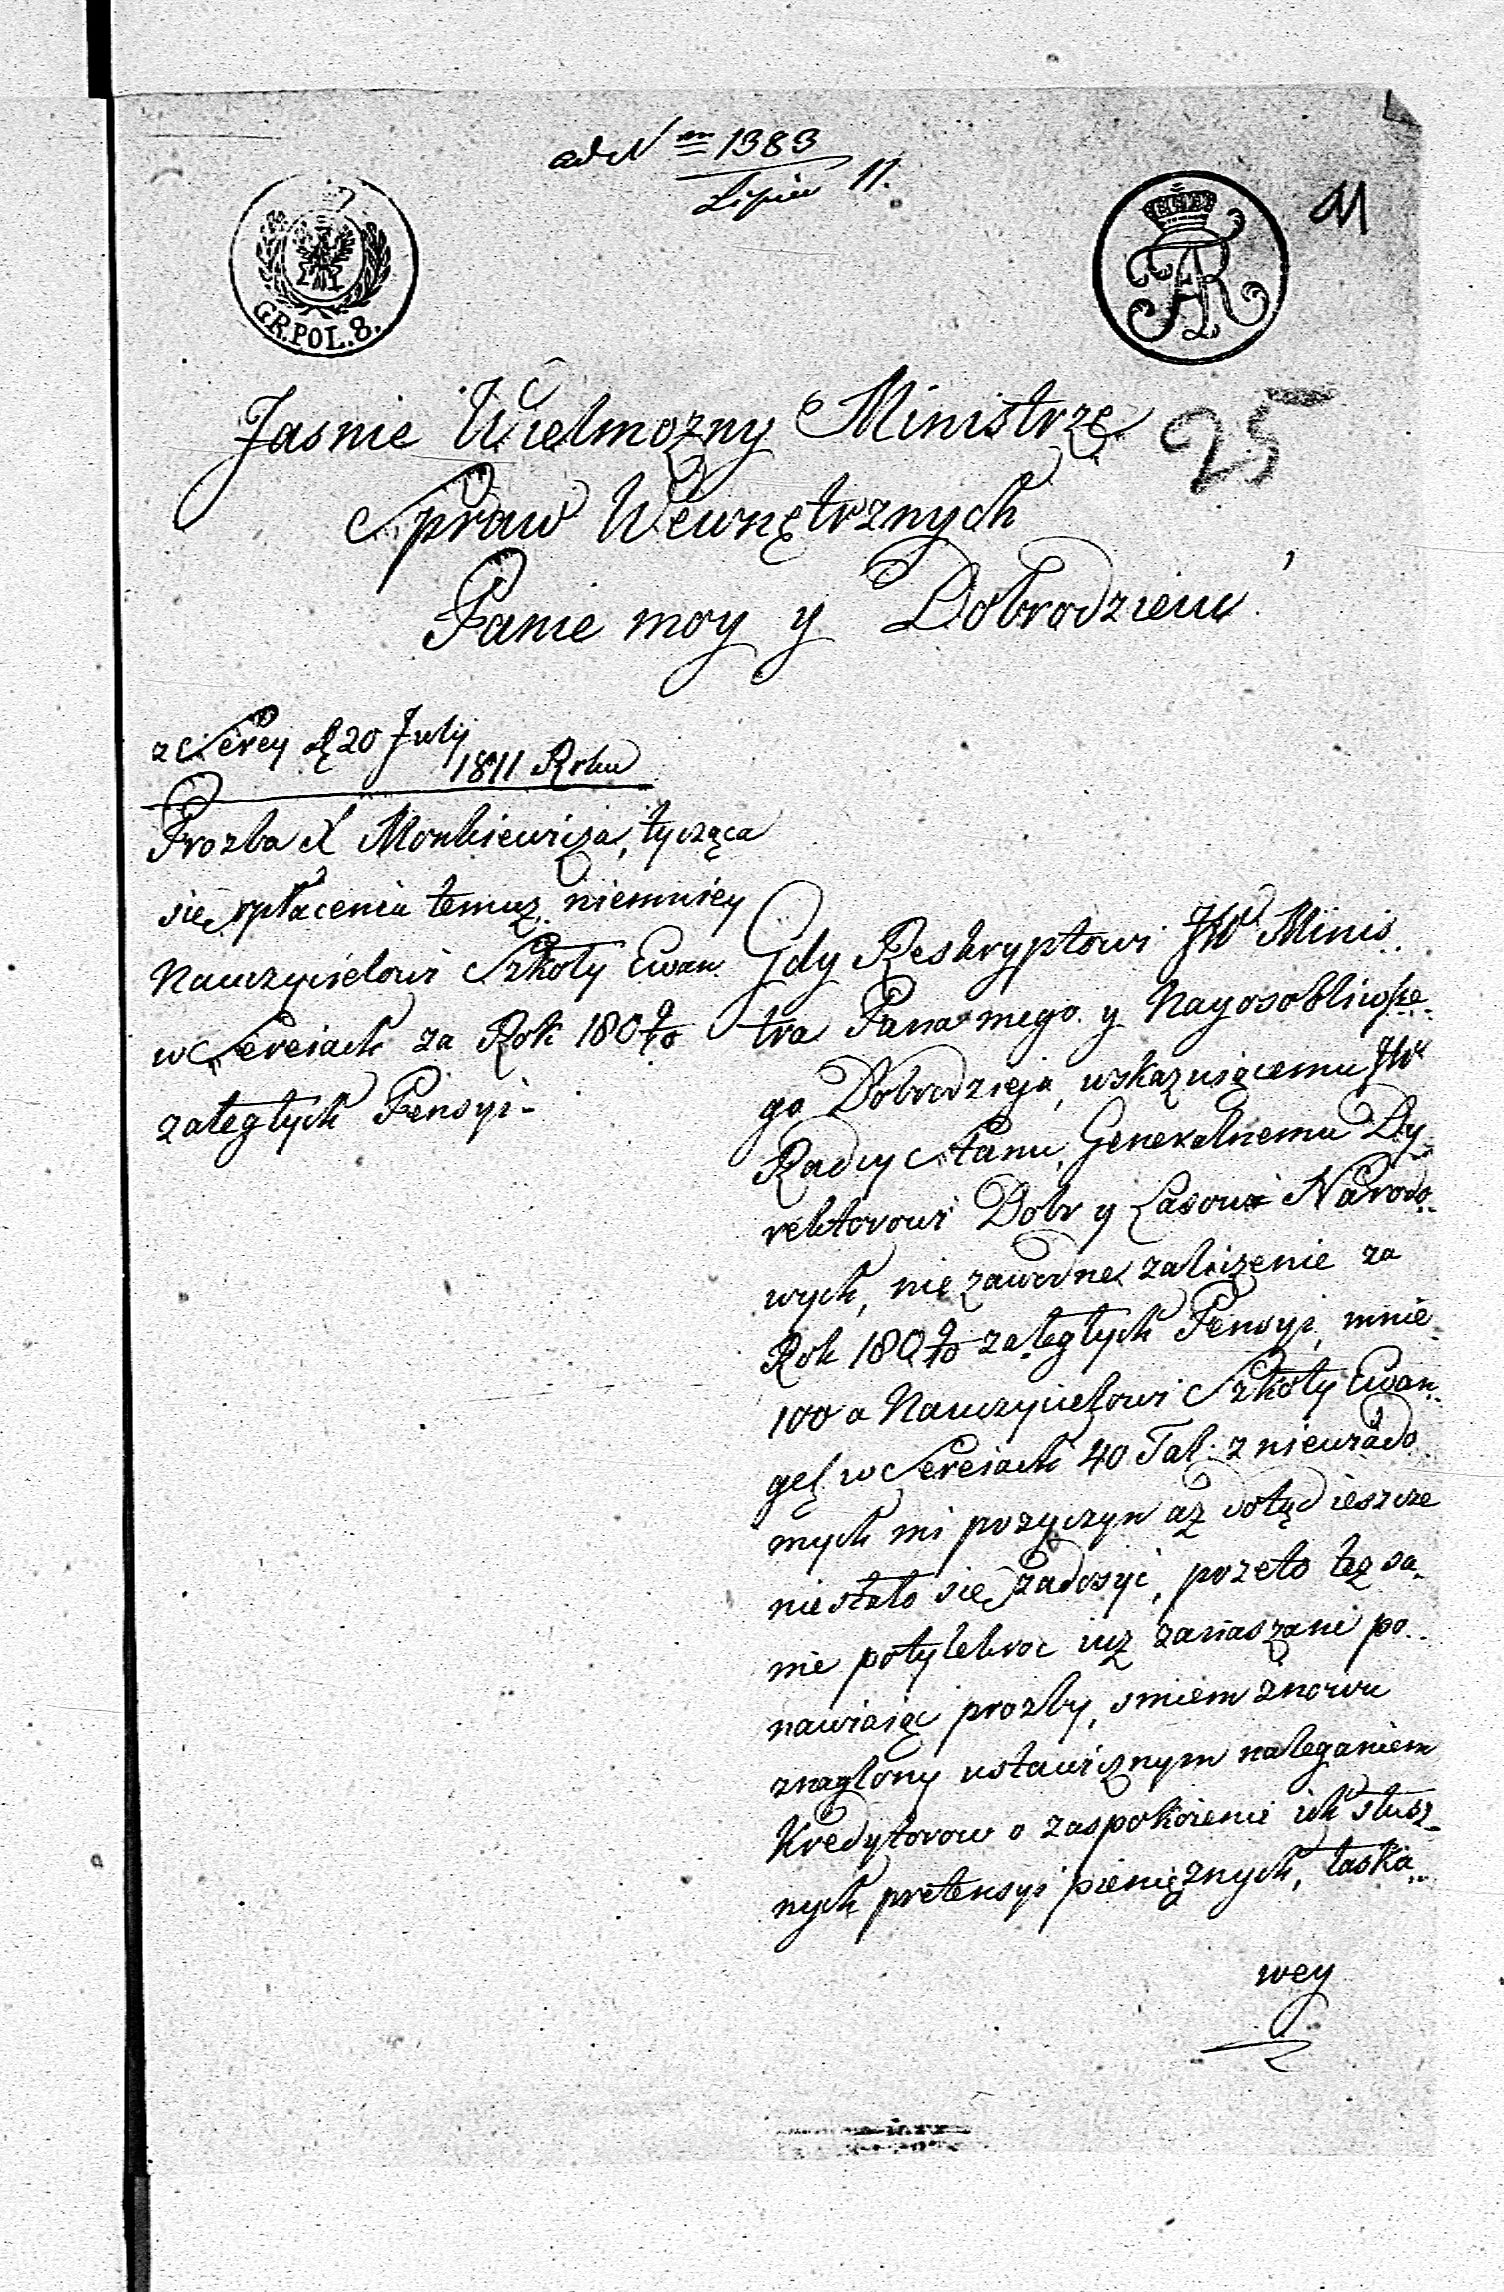 ad N<sup>m</sup> 1383
Lipiec 11.
GR.POL.8.
FAR
41
25
Jasnie Wielmozny Ministrze
Spraw Wewnętrznych
Panie moy y Dobrodzieiu
z Serey d 20 July
1811 Roku
Prozba X Monkiewicza, tycząca
się spłacenia temuz niemniey
Nauczycielowi Szkoły Ewan
w Sereiach za Rok 1809/10
zaległych Pensyi.
Gdy Reskryptowi JW Minis.
tra Pana mego y Nayosobliwsze
go Dobrodzieja, wskazuiącemu JW
Radcy Stanu, Generalnemu Dy
rektorowi Dobr y Lasow Narodo
wych, nie zawodne zaliczenie za
Rok 1809/10 zaległych Pensyi, mnie
100 a Nauczycielowi Szkoły Ewan
gel w Sereiach 40 Tal. z niewiado
mych mi pozyczyn az dotąd ieszcze
nie stało się zadosyć, przeto też sa
me potylekroc iuz zanaszane po
nawiaiąc prozby, smiem znowu
znaglony ustawicznym naleganiem
Kredytorow o zaspokoienie ich słusz
nych pretensyi pienięznych, łaska
wey